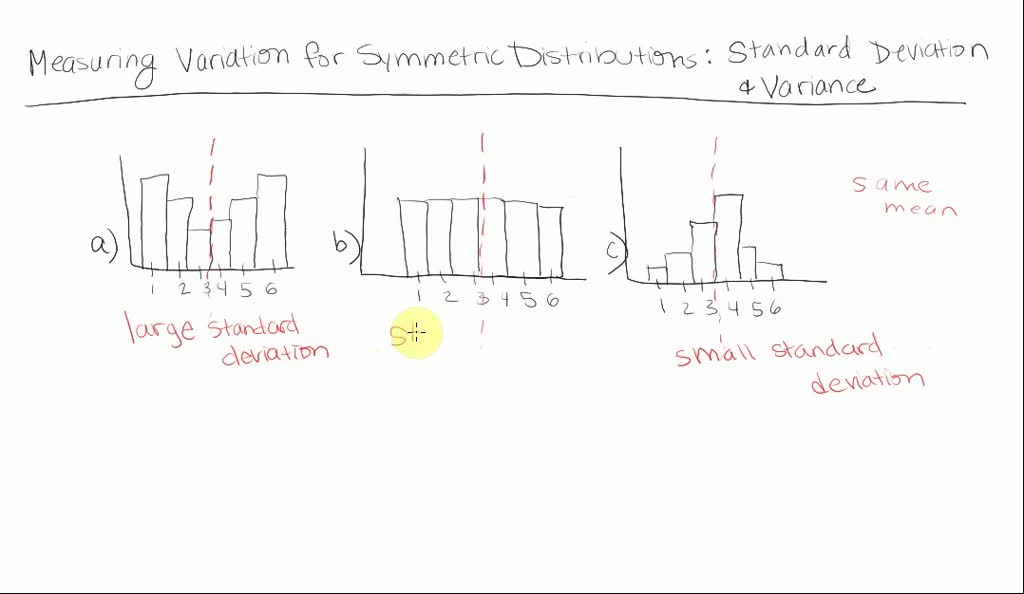 Measuring Variation for Symmetric Distributions: Standard Deviation
& Variance
same
mean
a)
1 2 3 4 5 6
large standard
deviation
b)
1 2 3 4 5 6
St
c)
1 2 3 4 5 6
small standard
deviation